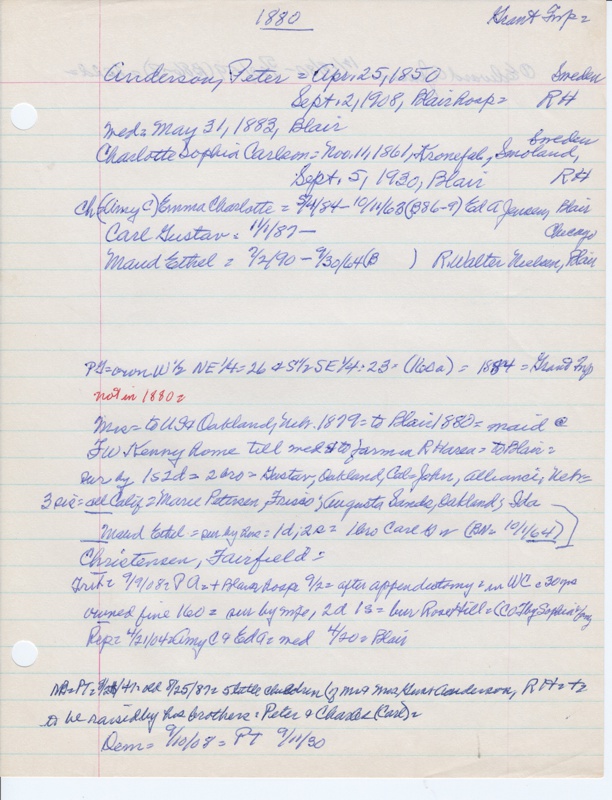 1880 Grant Twp =
Anderson, Peter = Apr. 25, 1850 Sweden
Sept. 2, 1908, Blair hosp = RH
med = May 31, 1883, Blair
Charlotte Sophia Carlson = Nov. 11, 1861, Kronefal, Smoland, Sweden
Sept. 5, 1930, Blair RH
Ch (Amy C) Emma Charlotte = 3/4/84 - 10/11/63 (B86-9) Ed A Jensen, Blair
Carl Gustav = 1/1/87 - Chicago
Maud Ethel = 7/2/90 - 9/30/64 (B ) R. Walter Nielsen, Blair
PT = own W 1/2 NE 1/4 = 26 & S 1/2 SE 1/4 = 23 = (160a) = 1884 = Grant Twp
not in 1880 =
Mrs = to US Oakland, Nebr. 1879 = to Blair 1880 = maid @
FW Kenny home till med & to farm in RH area = to Blair =
sur by 1s 2d = 2 bro = Gustav, Oakland, Cal = John, Alliance, Nebr =
3 sis = all Calif = Marie Petersen, Frisco; Augusta Sands, Oakland; Ida
Maud Ethel = sur by hus = 1d; 2s = 1 bro Carl G (BN = 10/1/64)
Christensen, Fairfield =
Trib = 9/9/08 = PA = + Blair hosp 9/2 = after appendectomy = in WC = 30 yrs
owned fine 160 = sur by wife, 2d 1s = bur Rose Hill =
Rep = 4/21/04 = Amy C & Ed A = med 4/20 = Blair
old 8/25/87 = children Mr & Mrs Anderson, RH =
be raised by hus brothers = Peter & Charles (Carl) =
Dem = 9/10/08 = PT 9/11/30